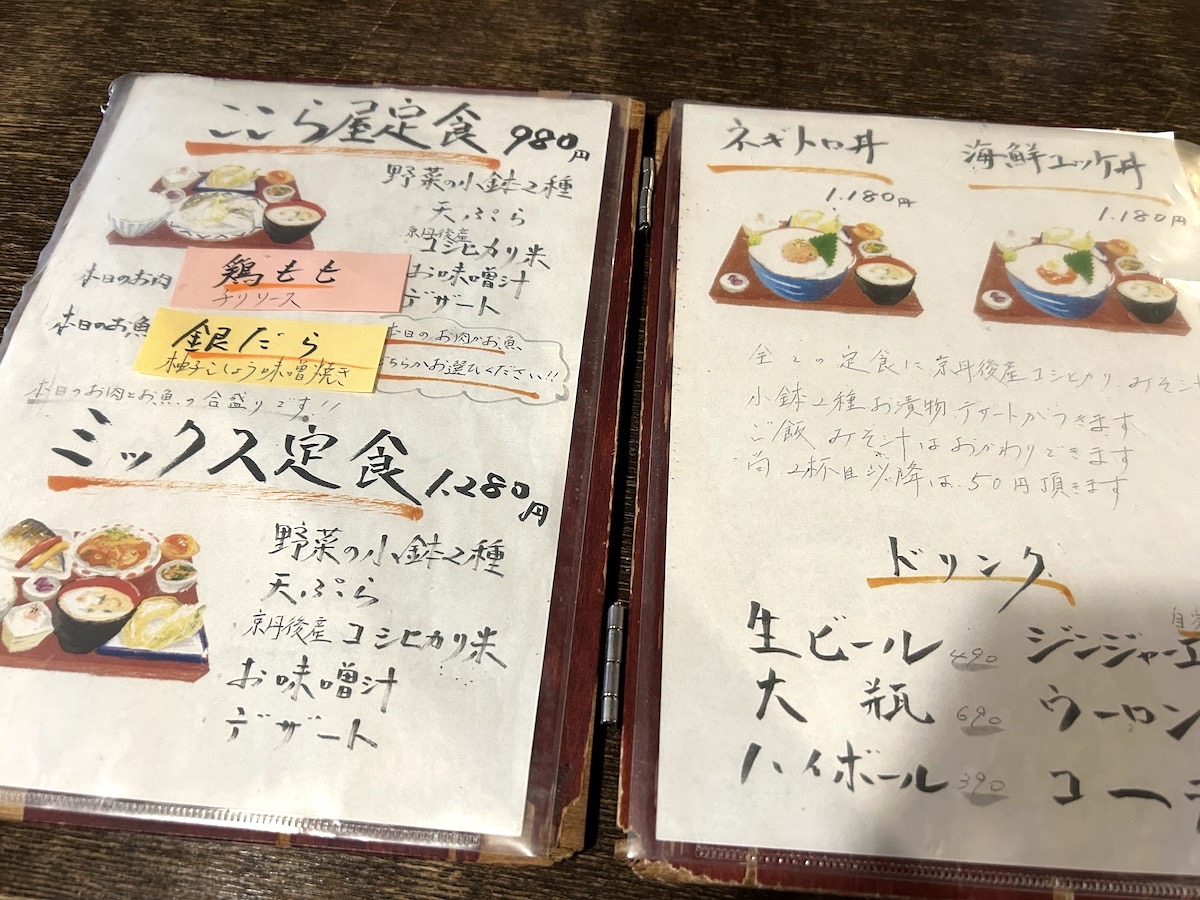 ここら屋定食 980円
野菜の小鉢2種
天ぷら
京丹後産
コシヒカリ米
お味噌汁
デザート
本日のお肉
鶏もも
チリソース
本日のお魚
銀だら
柚子こしょう味噌焼き
本日のお肉かお魚
どちらかお選びください!!
本日のお肉とお魚の合盛りです!!
ミックス定食 1.280円
野菜の小鉢2種
天ぷら
京丹後産 コシヒカリ米
お味噌汁
デザート
ネギトロ丼
1.180円
海鮮ユッケ丼
1.180円
全ての定食に京丹後産コシヒカリ、みそ汁
小鉢2種お漬物デザートがつきます
ご飯、みそ汁はおかわりできます
尚、2杯目以降は、50円頂きます
ドリンク
生ビール 490
大 瓶 690
ハイボール 390
ジンジャーエ
ウーロン
コー